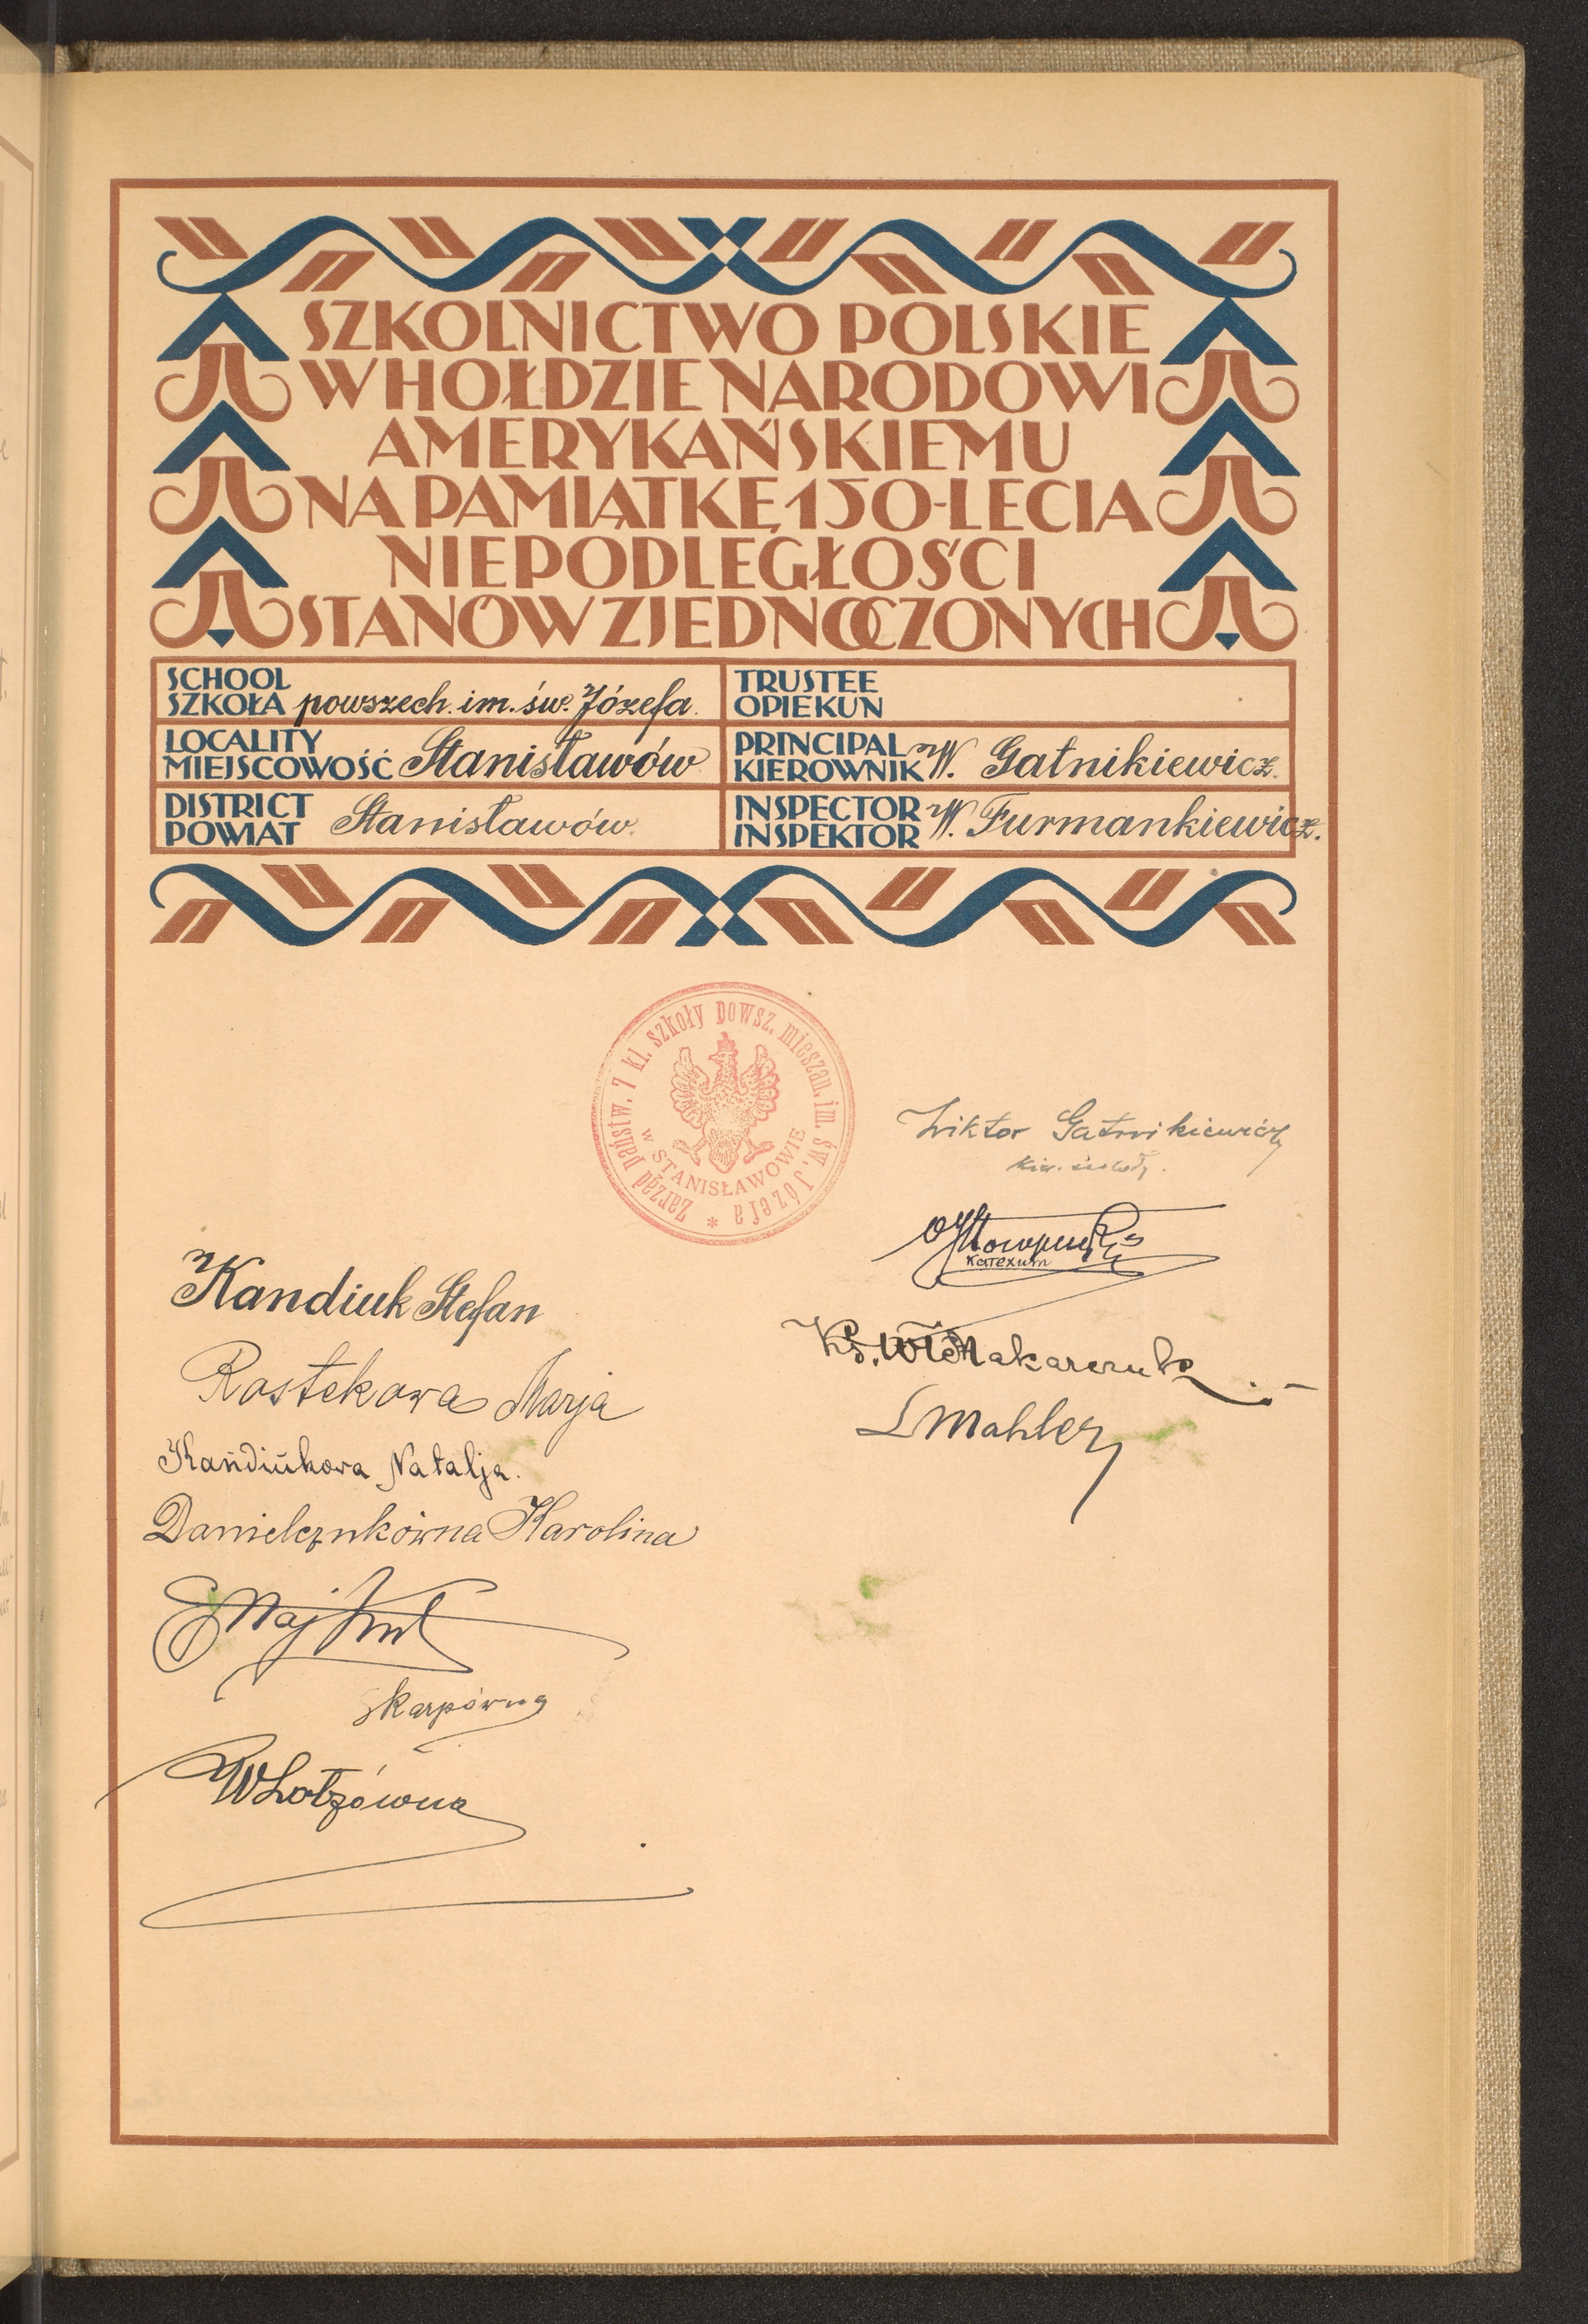 SZKOLNICTWO POLSKIE
W HOŁDZIE NARODOWI
AMERYKAŃSKIEMU
NA PAMIĄTKĘ 150-LECIA
NIEPODLEGŁOŚCI
STANÓW ZJEDNOCZONYCH
SCHOOL
SZKOŁA powszech. im. św. Józefa.
TRUSTEE
OPIEKUN
LOCALITY
MIEJSCOWOŚĆ Stanisławów
PRINCIPAL
KIEROWNIK W. Gatnikiewicz.
DISTRICT
POWIAT Stanisławów.
INSPECTOR
INSPEKTOR W. Furmankiewicz.
Zarząd państw. 7 kl. szkoły powsz. mieszan. im. św. Józefa *
w STANISŁAWOWIE
Wiktor Gatnikiewicz
kier. szkoły.
катехит
Kandiuk Stefan
Ks. Makarczuk
Rostekowa Marja
L Mahler
Kandiukowa Natalja.
Danielczukówna Karolina
Skarpówna
W Lotzówna